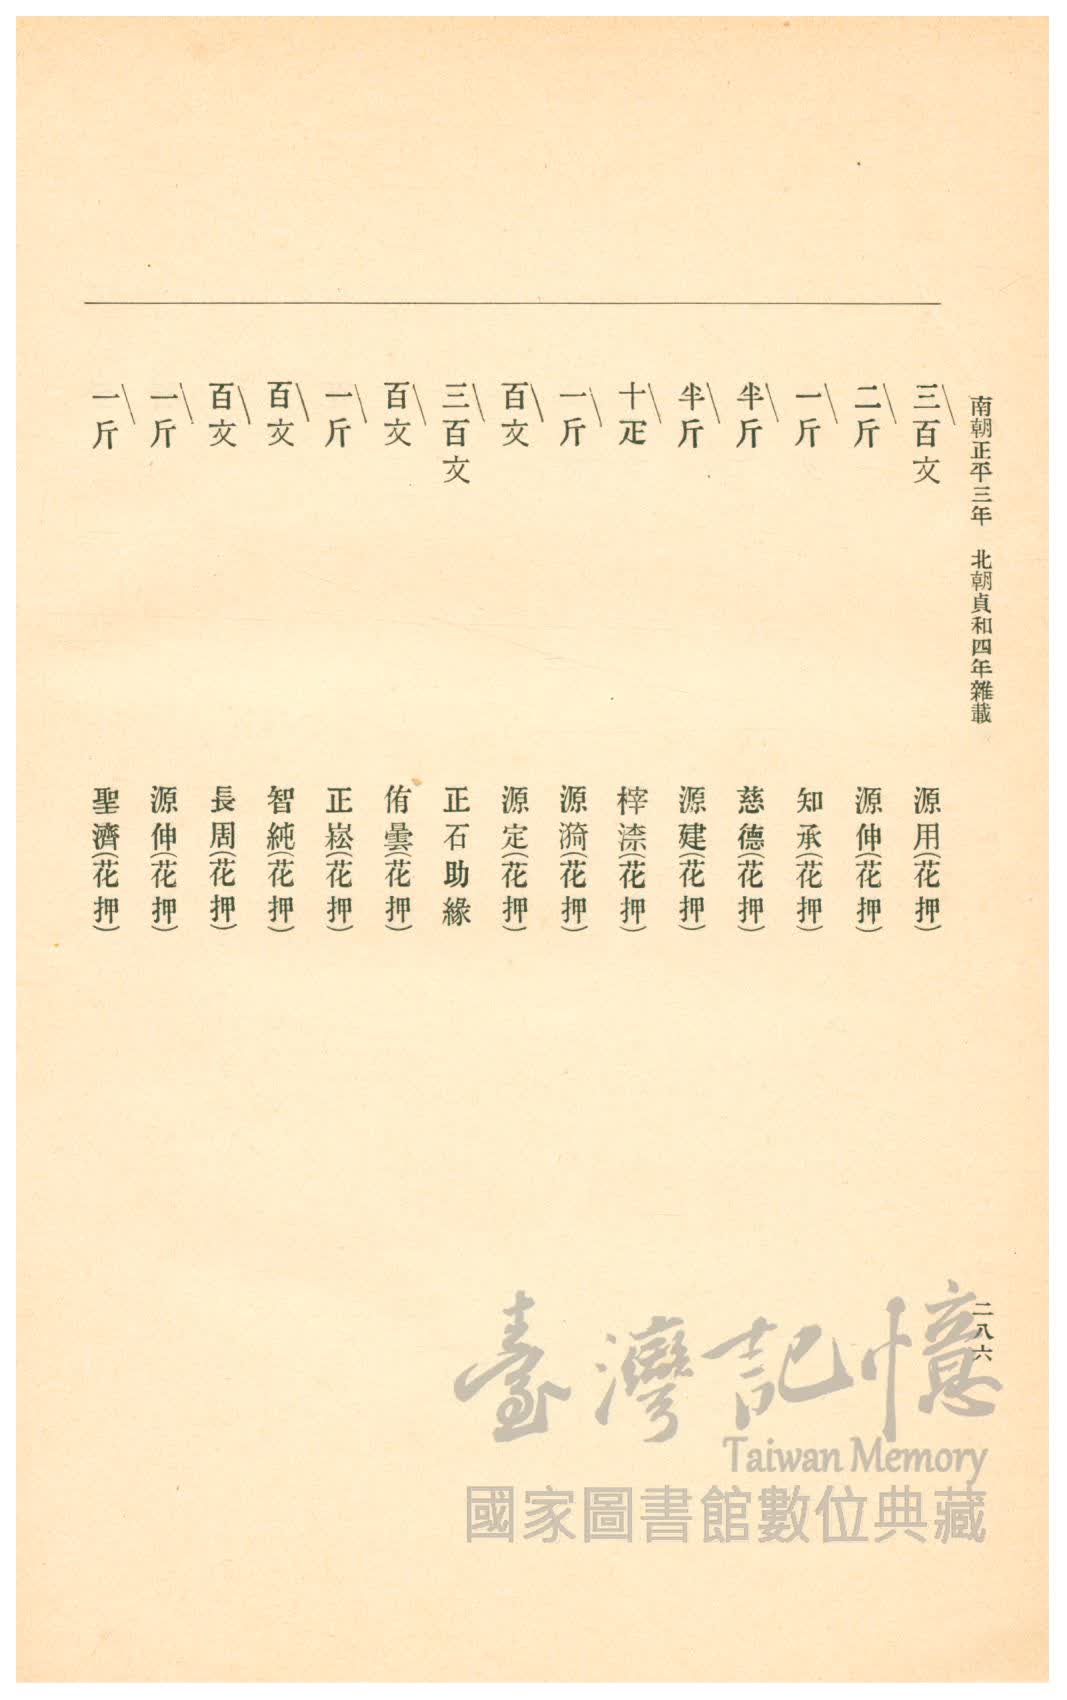 南朝正平三年　北朝貞和四年雜載
二八六
三百文　源用(花押)
二斤　源伸(花押)
一斤　知承(花押)
半斤　慈德(花押)
半斤　源建(花押)
十疋　梓渿(花押)
一斤　源漪(花押)
百文　源定(花押)
三百文　正石助緣
百文　侑曇(花押)
一斤　正崧(花押)
百文　智純(花押)
百文　長周(花押)
一斤　源伸(花押)
一斤　聖濟(花押)
臺灣記憶
Taiwan Memory
國家圖書館數位典藏